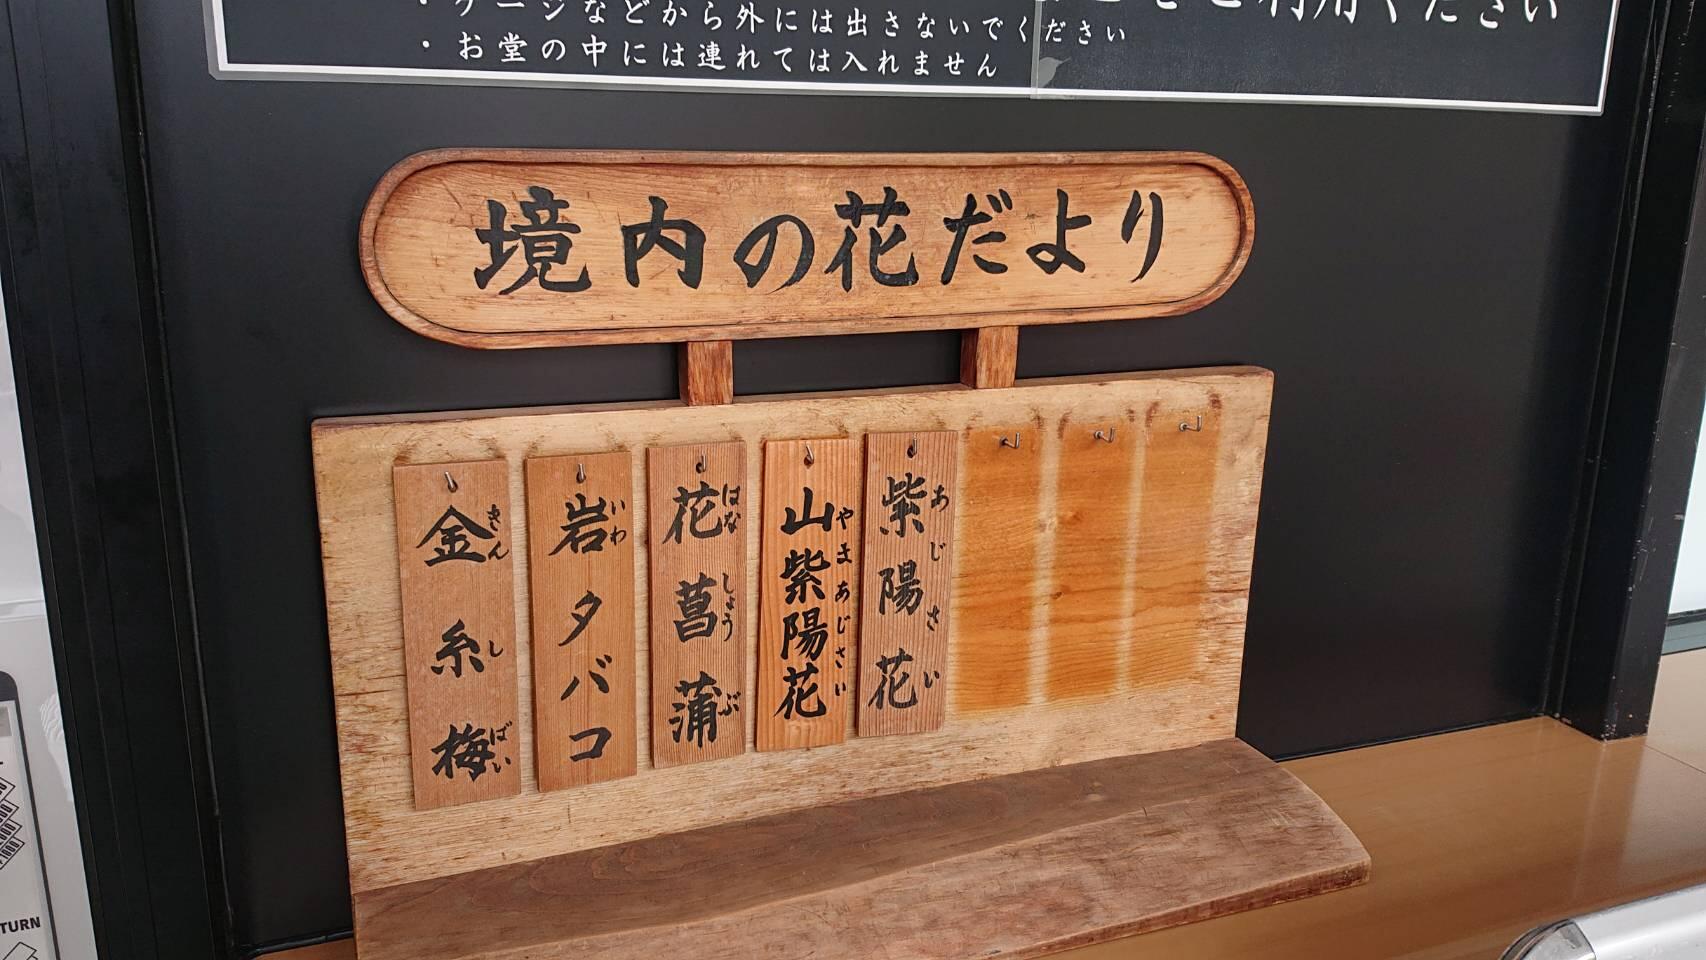 ・ケージなどから外には出さないでください
・お堂の中には連れては入れません
ご利用ください
境内の花だより
紫陽花
あじさい
山紫陽花
やまあじさい
花菖蒲
はなしょうぶ
岩タバコ
いわ
金糸梅
きんしばい
TURN